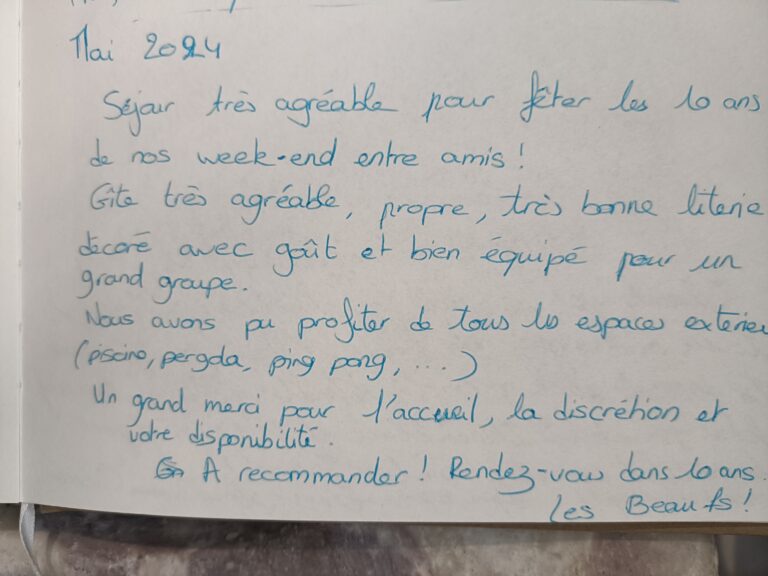 Mai 2024
Séjour très agréable pour fêter les 10 ans
de nos week-end entre amis !
Gîte très agréable, propre, très bonne literie
décoré avec goût et bien équipé pour un
grand groupe.
Nous avons pu profiter de tous les espaces extérieu
(piscine, pergola, ping pong, ...)
Un grand merci pour l'accueil, la discrétion et
votre disponibilité.
A recommander ! Rendez-vous dans 10 ans.
Les Beaufs !